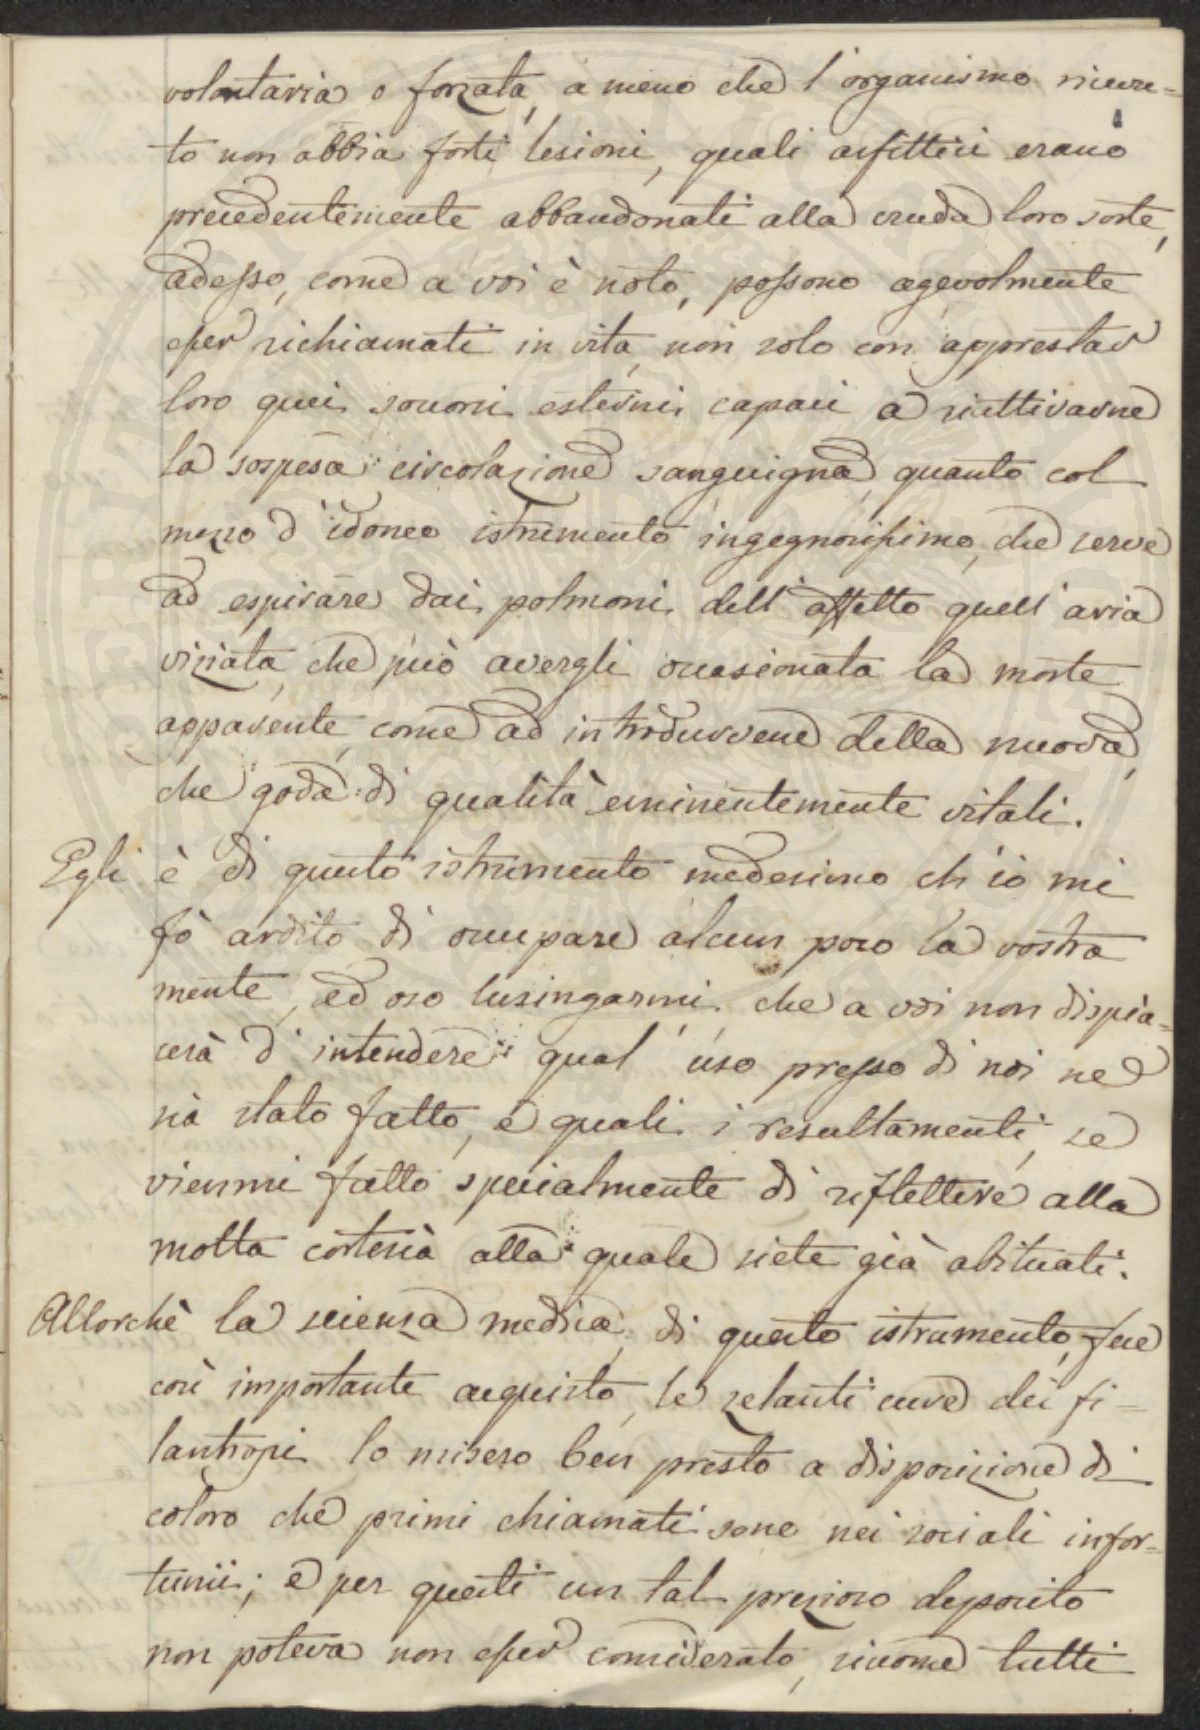 volontaria o forzata, a meno che l'organismo ricevu=
to non abbia forti lesioni, quali asfittici erano
precedentemente abbandonati alla cruda loro sorte,
adesso, come a voi è noto, possono agevolmente
esser richiamati in vita, non solo con apprestar
loro quei soccorsi esterni capaci a riattivarne
la sospesa circolazione sanguigna, quanto col
mezzo d'idoneo istrumento ingegnosissimo, che serve
ad espirare dai polmoni dell'affetto quell'aria
viziata, che può avergli occasionata la morte
apparente, come ad introdurvene della nuova,
che goda di qualità eminentemente vitali.
Egli è di questo istrumento medesimo ch'io mi
fò ardito di occupare alcun poco la vostra
mente, ed oso lusingarmi che a voi non dispia=
cerà d'intendere qual'uso presso di noi ne
sia stato fatto, e quali i resultamenti, se
viemmi fatto specialmente di riflettere alla
molta cortesia alla quale siete già abituati.
Allorchè la scienza medica, di questo istrumento, fece
così importante acquisto, le zelanti cure dei fi=
lantropi lo misero ben presto a disposizione di
coloro che primi chiamati sono nei sociali infor=
tunii; e per questi un tal prezioso deposito
non poteva non esser considerato, siccome tutti